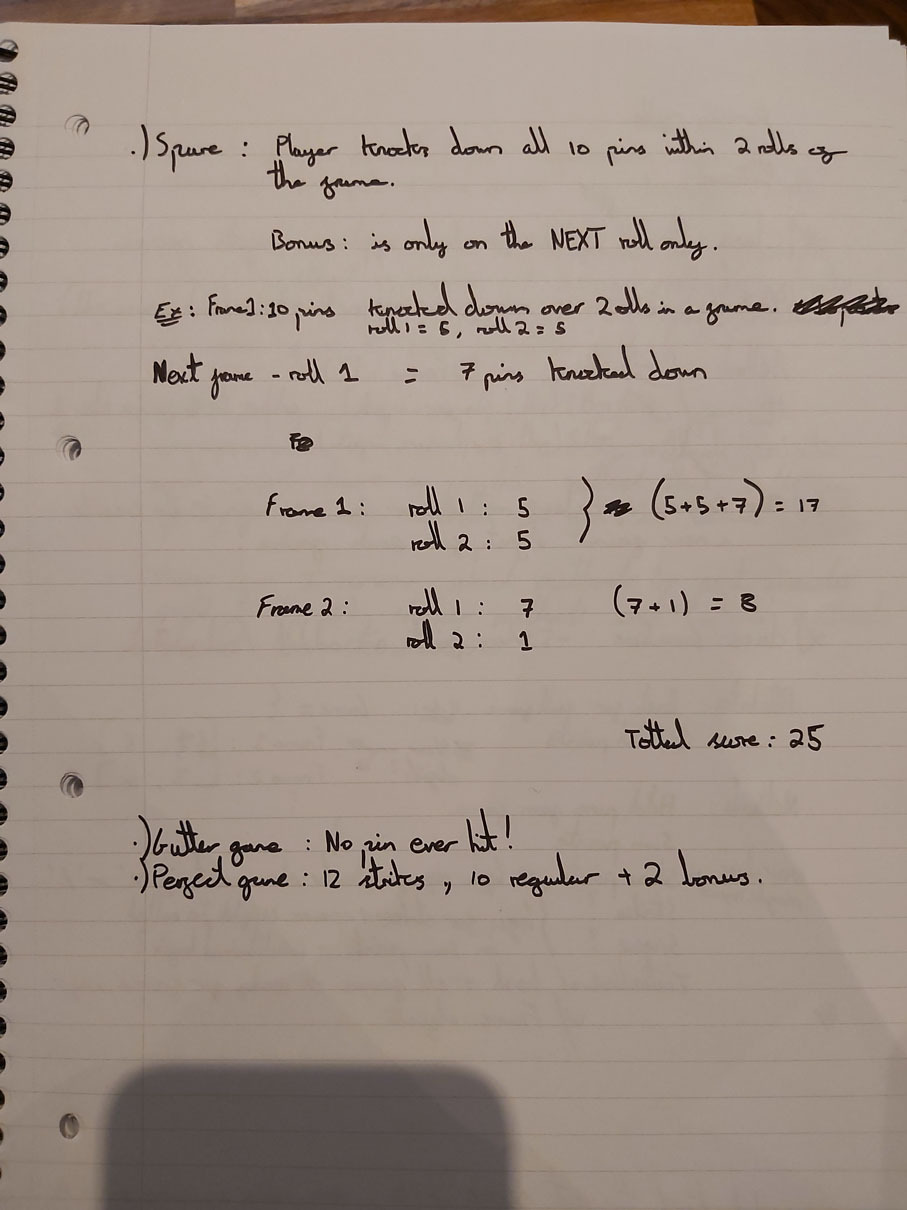 .) Spare : Player knocks down all 10 pins within 2 rolls of
the frame.
Bonus : is only on the NEXT roll only.
Ex : Frame 1 : 10 pins knocked down over 2 olls in a frame.
roll 1 = 5, roll 2 = 5
Next frame - roll 1 = 7 pins knocked down
Frame 1 : roll 1 : 5 } (5+5+7) = 17
roll 2 : 5
Frame 2 : roll 1 : 7 (7+1) = 8
roll 2 : 1
Totted score : 25
.) Gutter game : No pin ever hit!
.) Perfect game : 12 strikes, 10 regular + 2 bonus.